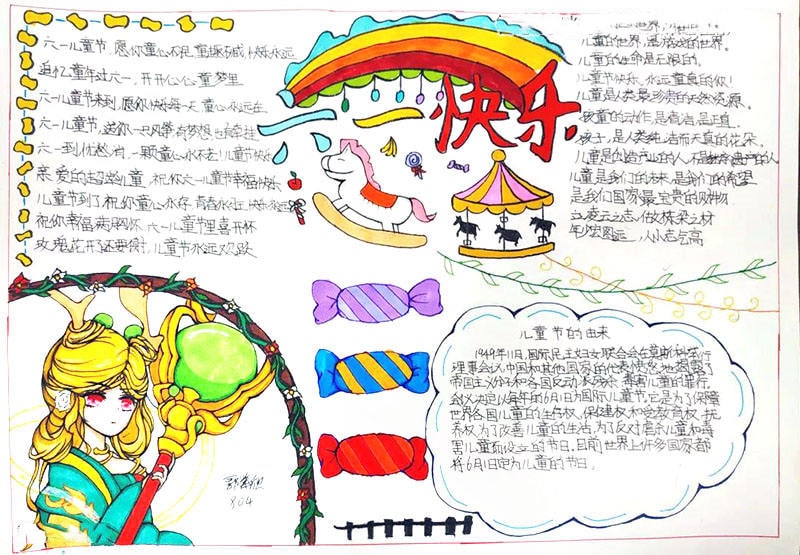 六一儿童节,愿你童心不尼童趣不减,快乐永远
追忆童年过六一,开开心心童梦里
六一儿童节来到,愿你快乐每一天童心永远在
六一儿童节,送你一只风筝有梦想也有牵挂
六一到,忧愁消,一颗童心永不老!儿童节快乐
亲爱的超龄儿童,祝你六一儿童节幸福快乐
儿童节到了祝你童心永存,青春永驻,快乐永远
祝你幸福满胸怀,六一儿童节里喜开怀
儿童节永远欢跃
六一快乐
儿童的世界,是游戏的世界。
儿童的生命是无限的。
儿童节快乐,永远童真的你!
儿童是人类最珍贵的天然资源。
孩童的动作,是清洁,是正直。
孩子,是人类纯洁而天真的花朵。
儿童是创造产业的人,不是继承遗产的人
儿童是我们的未来,是我们的希望
是我们国家最宝贵的财物
立凌云之志,做栋梁之材
年少宏图远,人小志气高
儿童节的由来
1949年11月,国际民主妇女联合会在莫斯科举行
理事会议,中国和其他国家的代表愤怒地揭露了
帝国主义分子和各国反动派残杀、毒害儿童的罪行,
会议决定以每年的6月1日为国际儿童节。它是为了保障
世界各国儿童的生存权、保健权和受教育权、抚
养权,为了改善儿童的生活,为了反对虐杀儿童和毒
害儿童而设立的节日。目前世界上许多国家都
将6月1日定为儿童的节日。
804